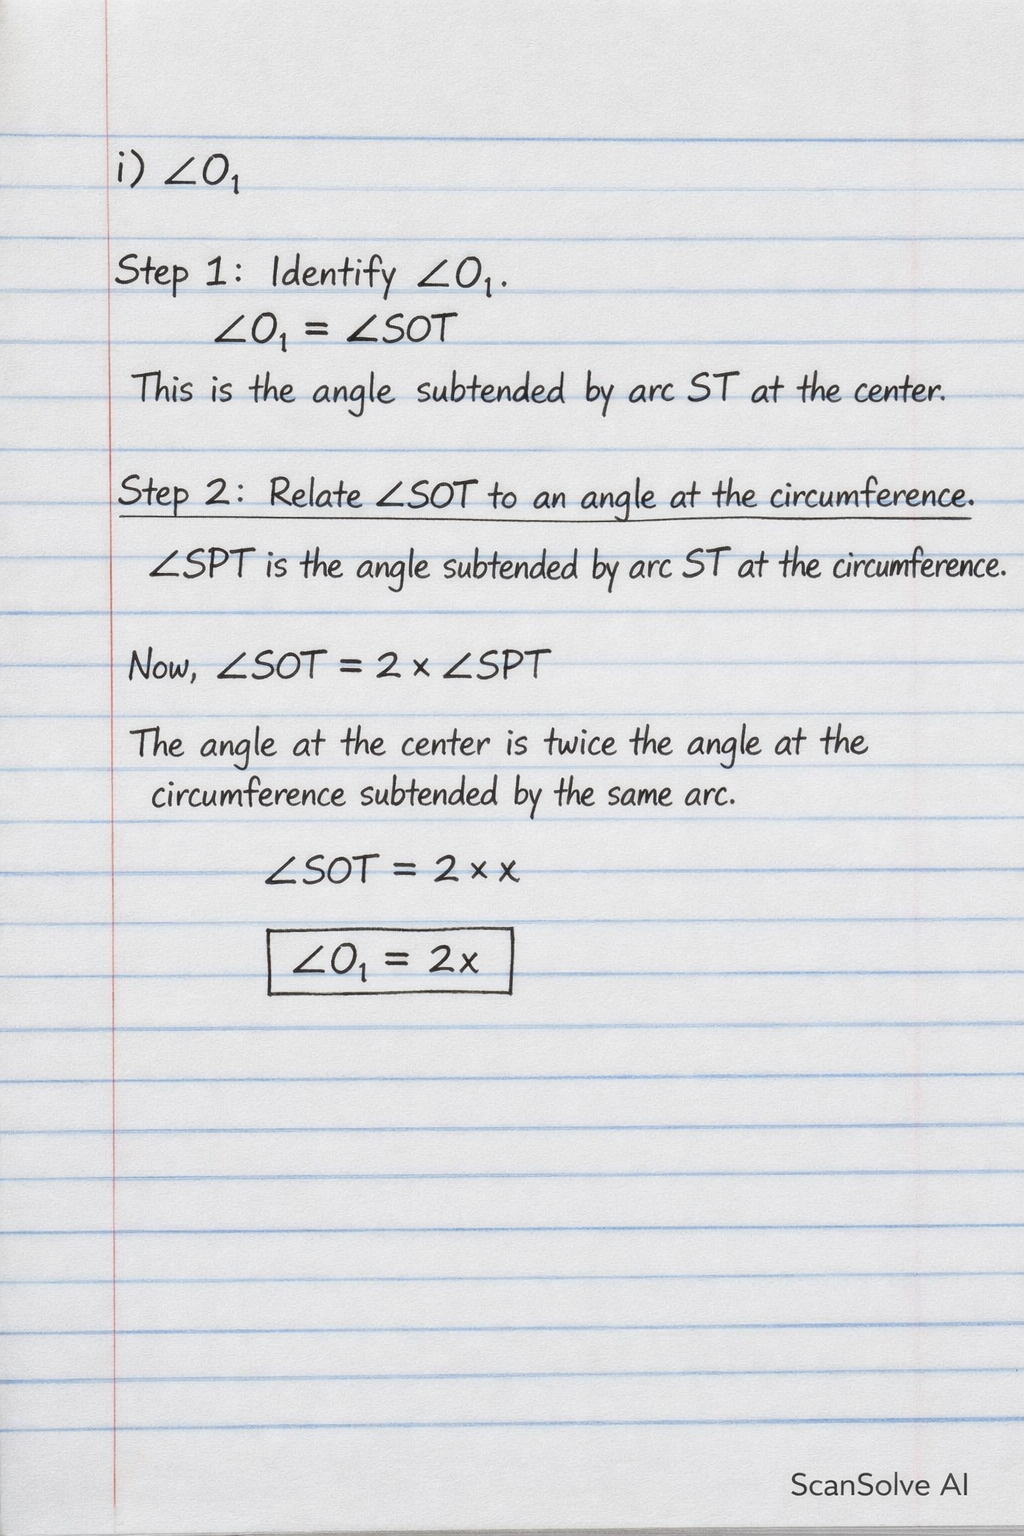 i) ∠O₁
Step 1: Identify ∠O₁.
∠O₁ = ∠SOT
This is the angle subtended by arc ST at the center.
Step 2: Relate ∠SOT to an angle at the circumference.
∠SPT is the angle subtended by arc ST at the circumference.
Now, ∠SOT = 2 × ∠SPT
The angle at the center is twice the angle at the
circumference subtended by the same arc.
∠SOT = 2 × x
∠O₁ = 2x
ScanSolve AI